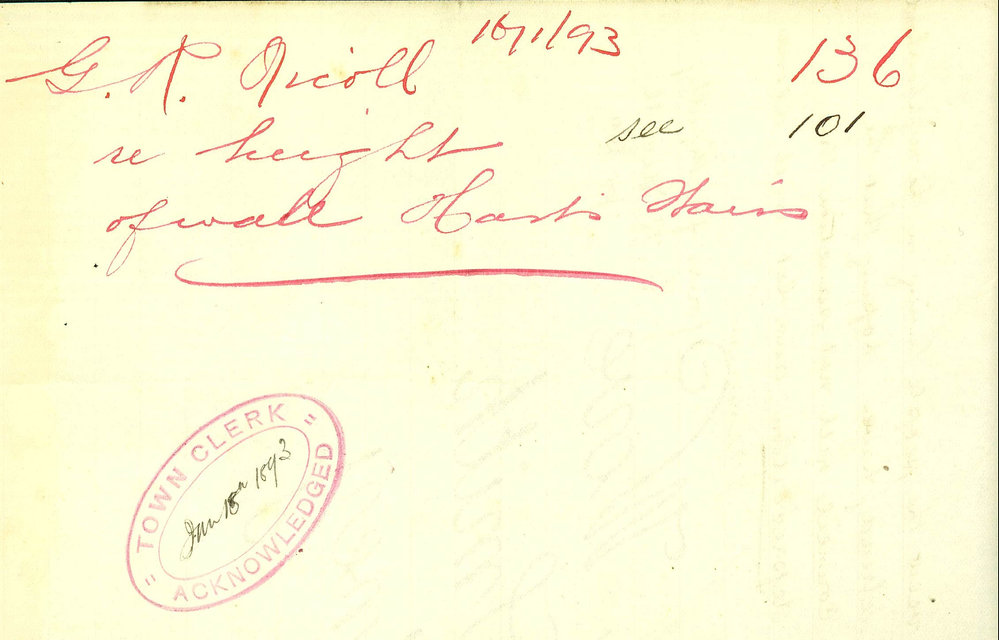 G. R. Nicoll 16/1/93 136
re height see 101
of wall Harts Stairs
" TOWN CLERK "
Jan 18th 1893
ACKNOWLEDGED